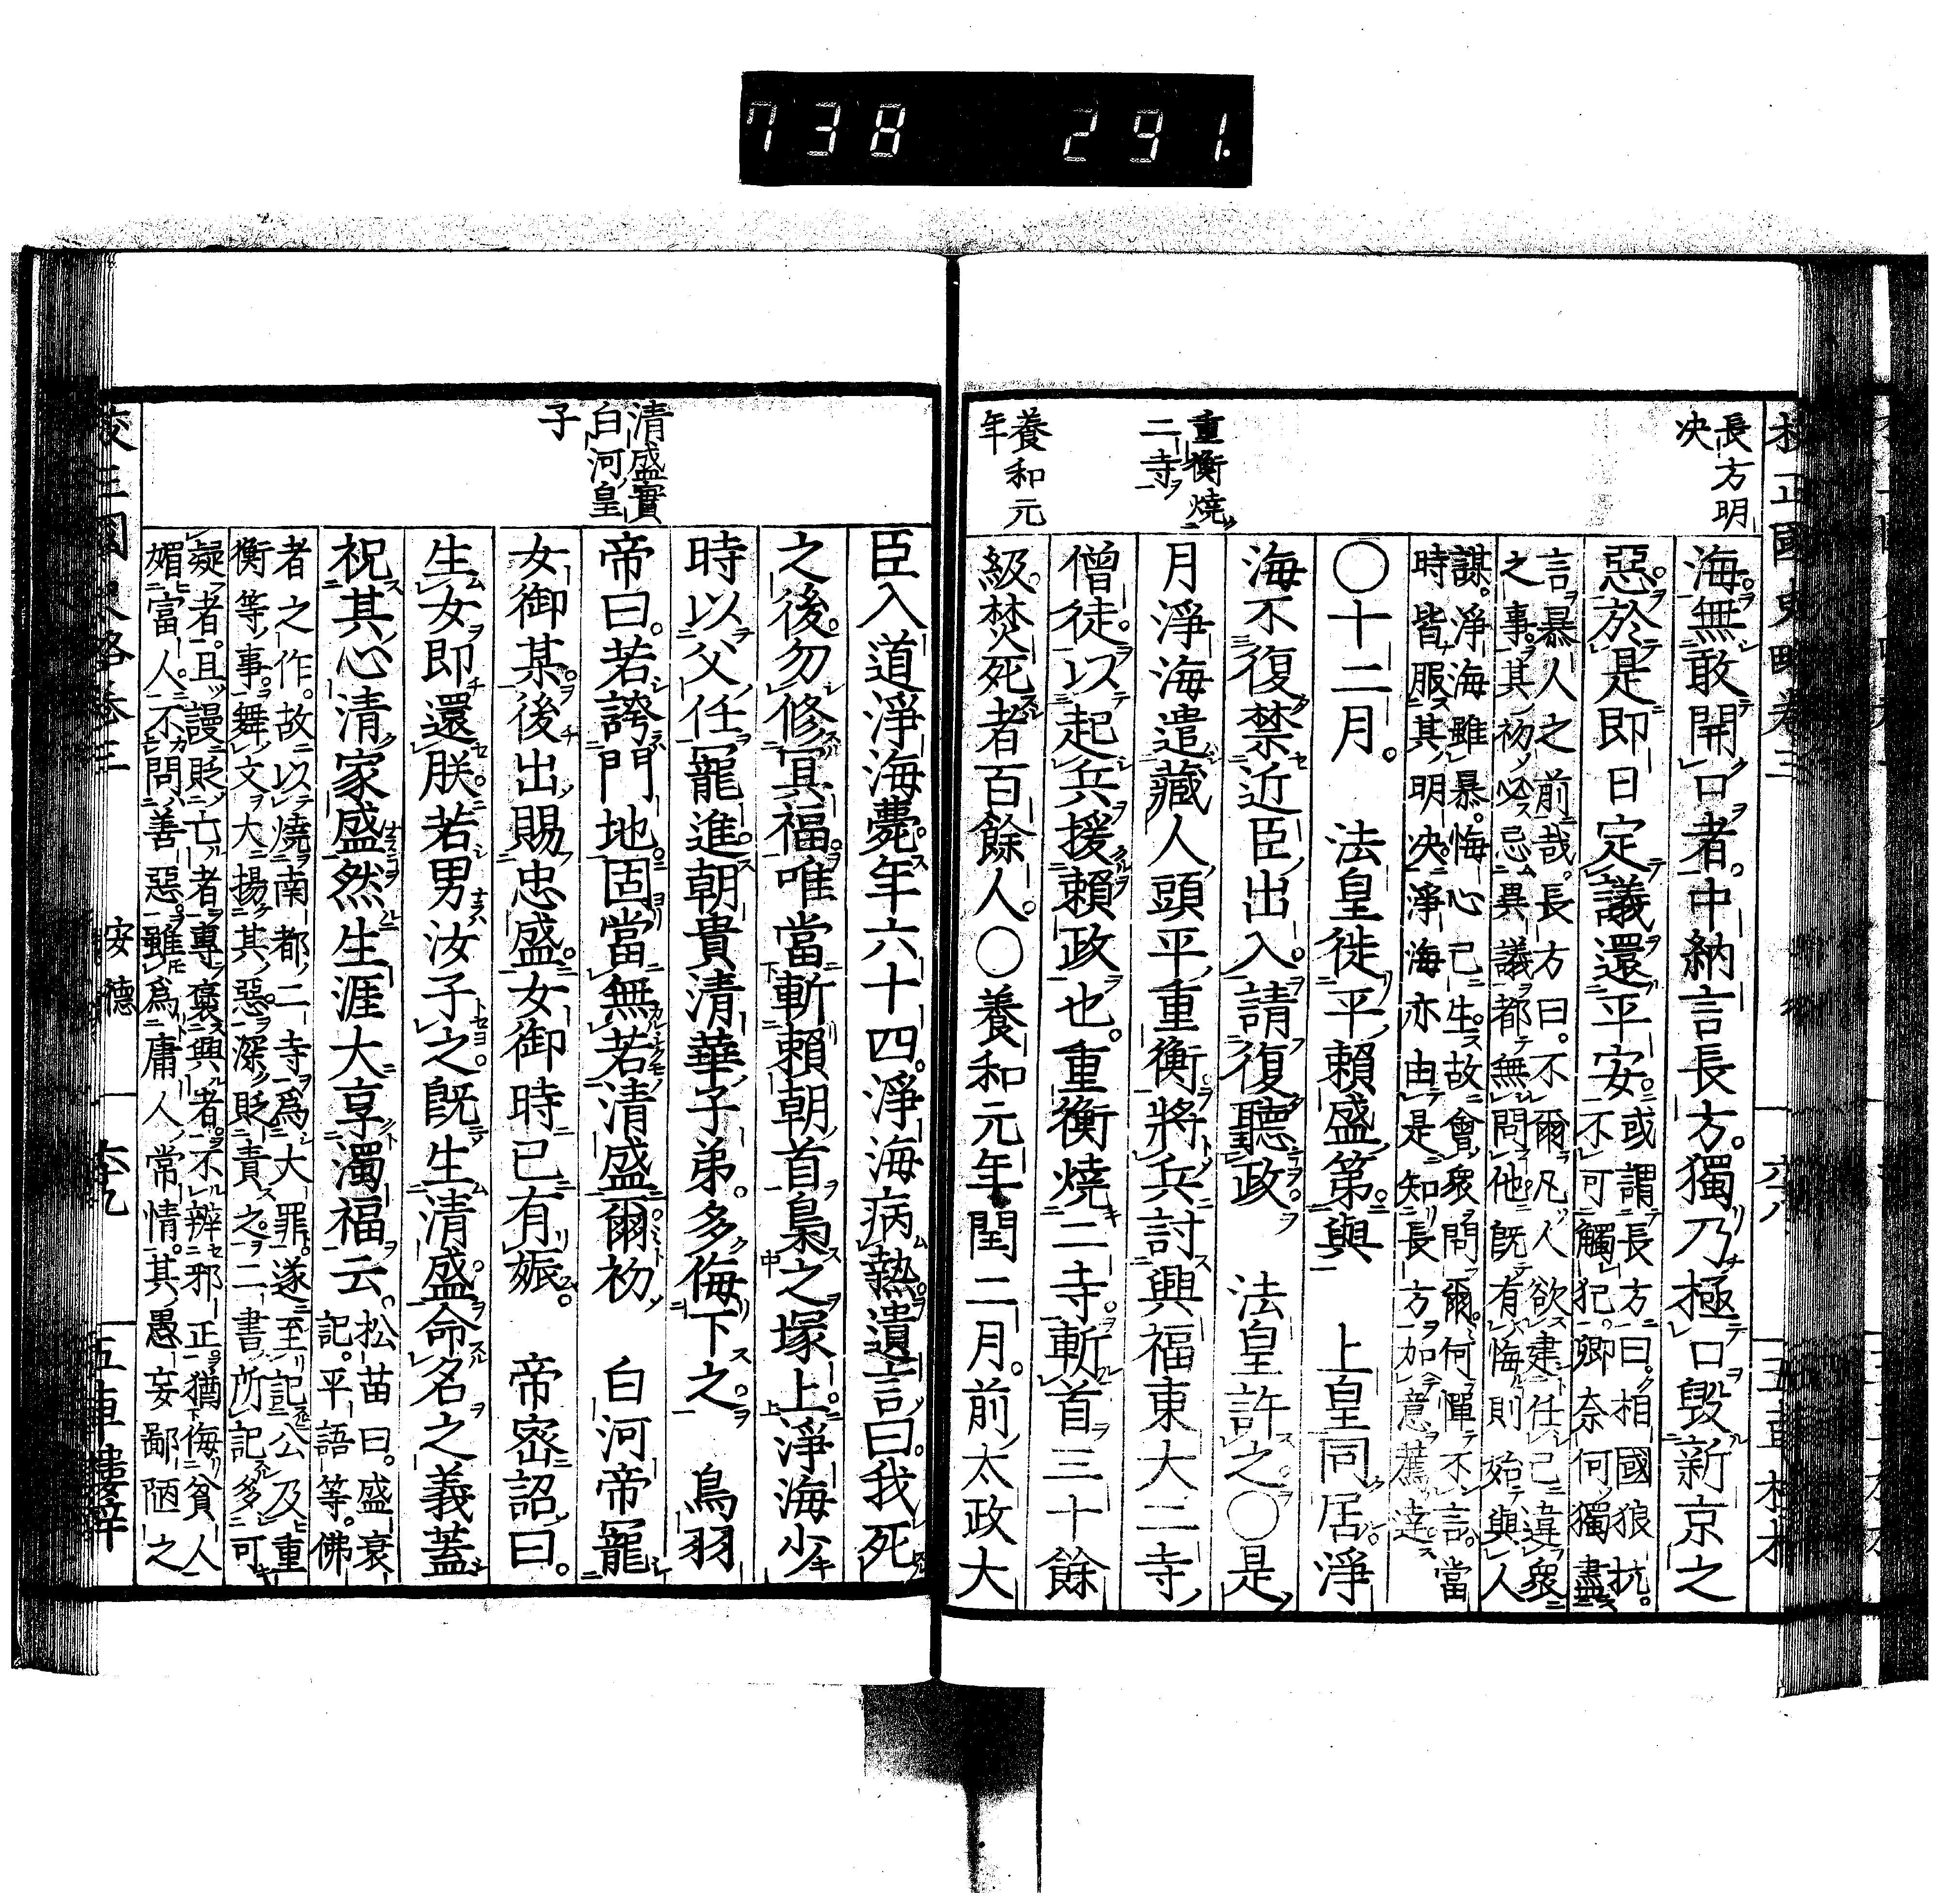 738 291.
校正國史畧卷三
六八
長方明
决
重衡燒
二寺
養和元
年
海無敢開口者。中納言長方。獨乃極口毀新京之
惡。於是即日定議還平安。或謂長方曰。相國狼抗。
不可觸犯。卿奈何獨盡
言暴人之前哉。長方曰。不爾。凡人欲建任己違衆
之事。其初必忌異議。都無問他。既有悔則始與人
謀。淨海雖暴。悔心已生。故會衆問爾。何憚不言。當
時皆服其明决。淨海亦由是知長方加意薦達
〇十二月。 法皇徙平賴盛第。與 上皇同居。淨
海不復禁近臣出入。請復聽政 法皇許之。〇是
月淨海遣藏人頭平重衡將兵討興福東大二寺
僧徒。以起兵援賴政也。重衡燒二寺。斬首三十餘
級。焚死者百餘人。〇養和元年閏二月。前太政大
清盛實
白河皇
子
臣入道淨海薨。年六十四。淨海病熱。遺言曰。我死
之後。勿修冥福。唯當斬賴朝首梟之塚上。淨海少
時以父任寵進。朝貴清華子弟。多侮下之。 鳥羽
帝曰。若誇門地。固當無若清盛爾。初 白河帝寵
女御某。後出賜忠盛。女御時已有娠。 帝密詔曰。
生女即還朕。若男汝子之。既生清盛。命名之義蓋
祝其心清家盛。然生涯大享濁福云。松苗曰。盛衰
記。平語等。佛
者之作。故以燒南都二寺爲大罪。遂至記公及重
衡等事。舞文大揚其惡。深貶責之。二書所記多可
疑者。且謾貶亡者。專褒興者。不辨邪正。猶侮貧人
媚富人。不問善惡。雖爲庸人常情。其愚妄鄙陋之
安德
五車樓梓